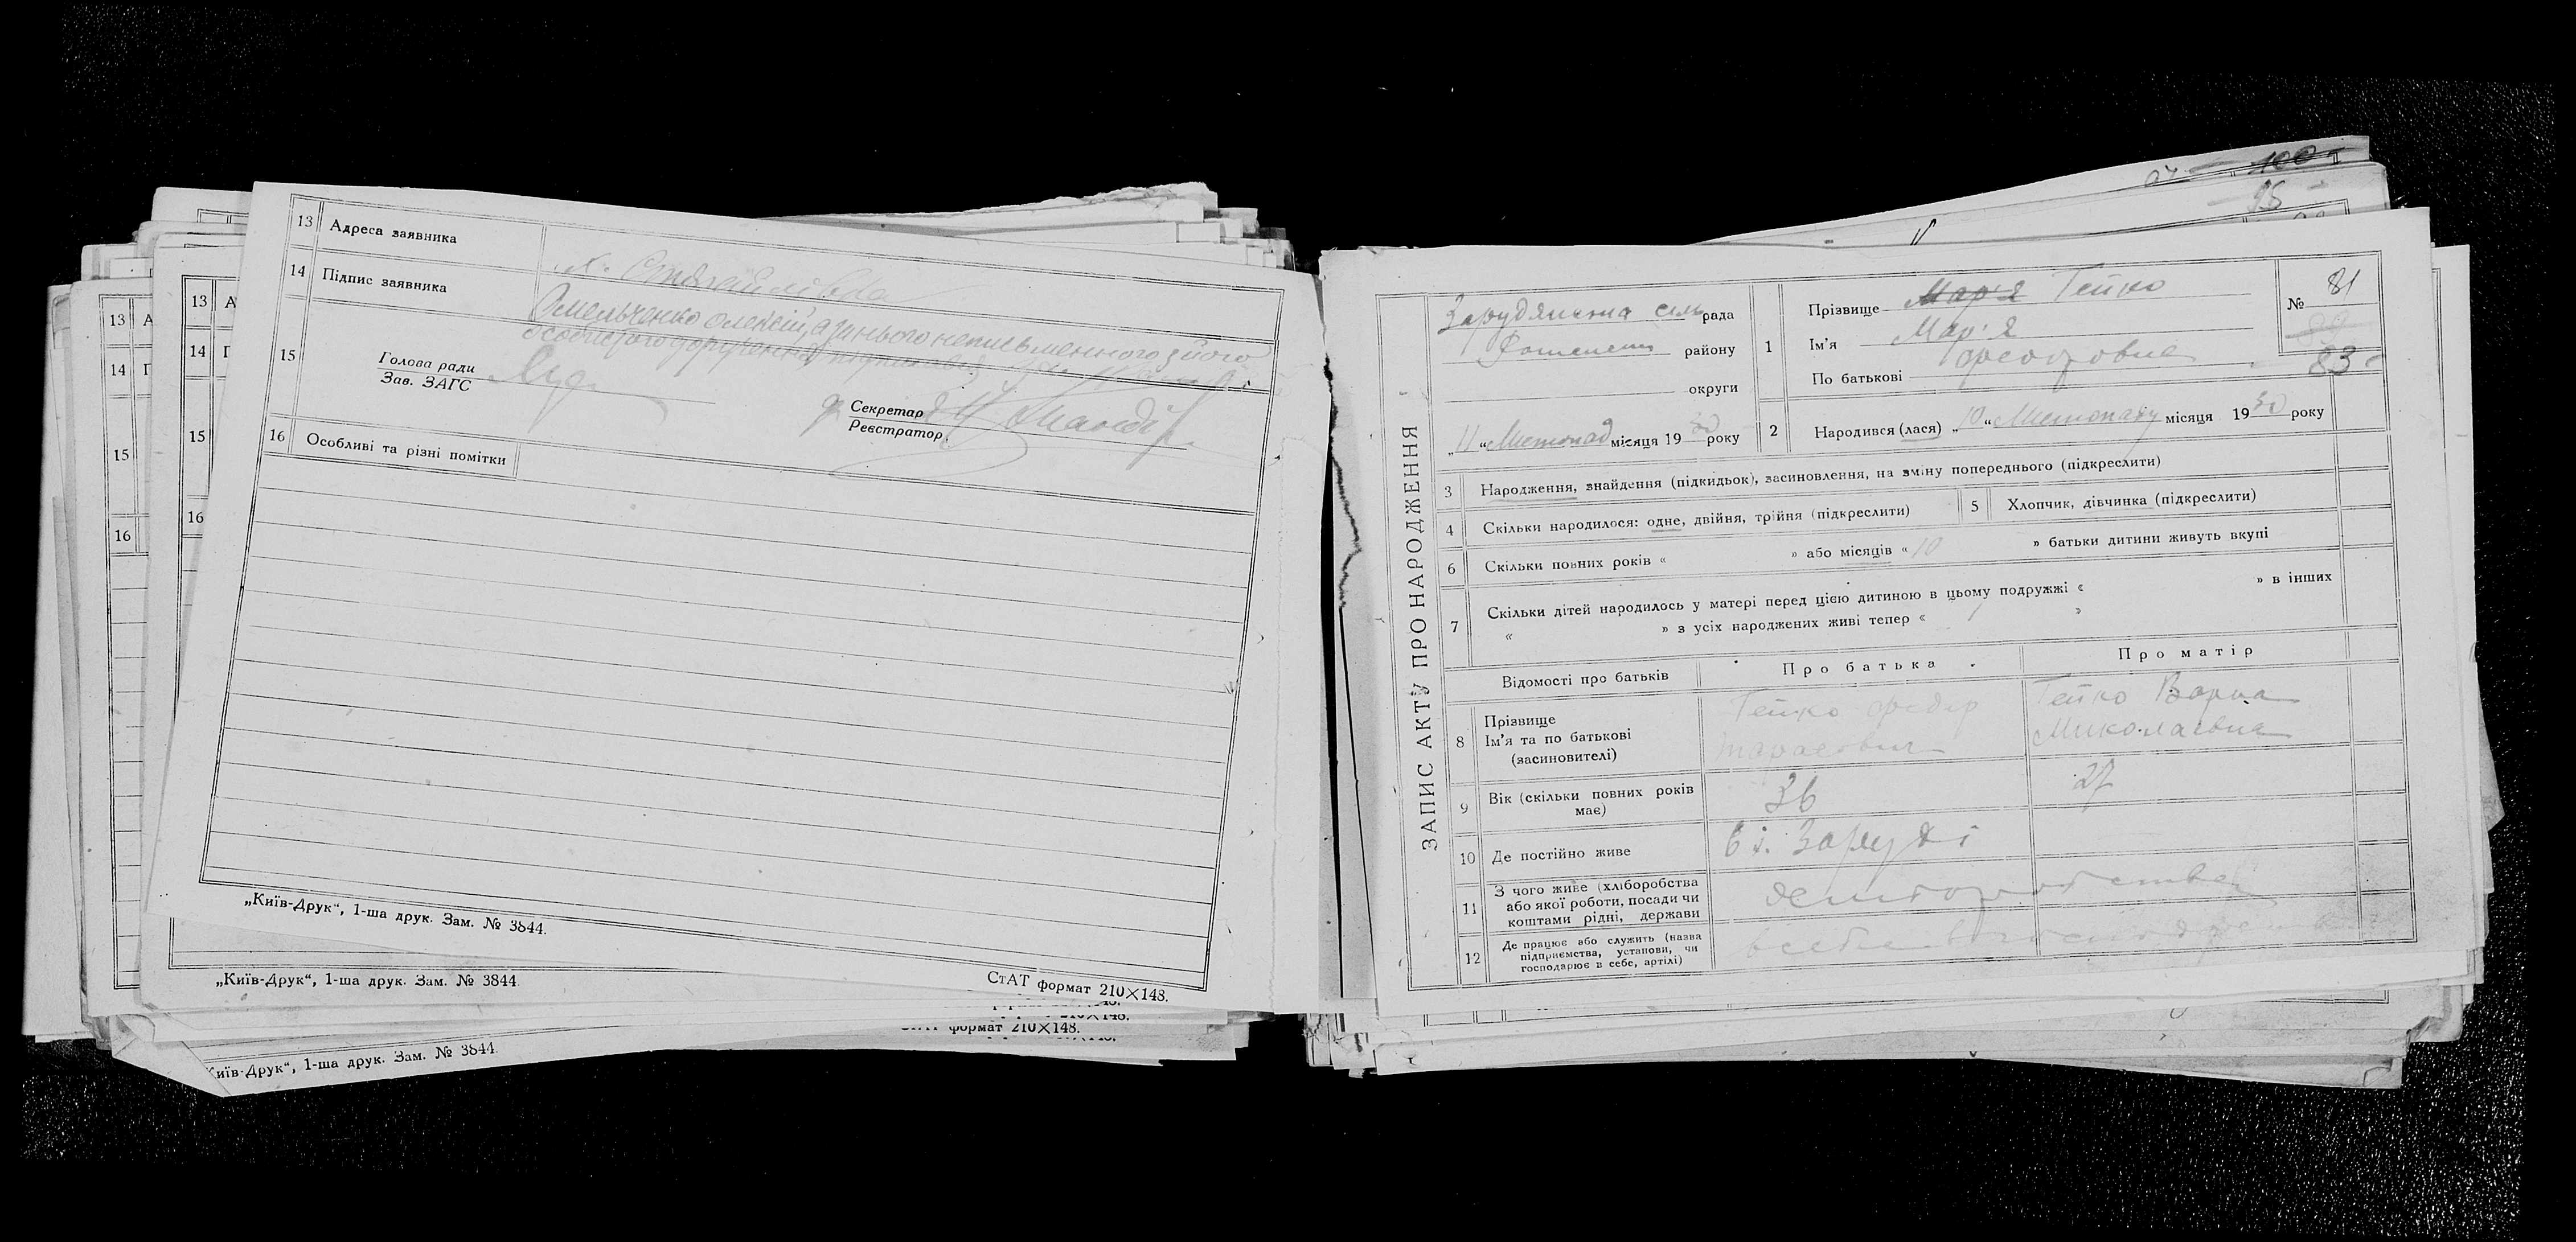 13 Адреса заявника
14 Підпис заявника
Омельченко Олексій, а за нього неписьменного з його
особистого доручення
15 Голова ради
Зав. ЗАГС
Секретар
Реєстратор
16 Особливі та різні помітки
„Київ-Друк“, 1-ша друк. Зам. № 3844.
„Київ-Друк“, 1-ша друк. Зам. № 3844.
СтАТ формат 210×148.
формат 210×148.
Київ-Друк“, 1-ша друк. Зам. № 3844
13 А
14 П
15
16
13 А
14 Г
15
16
100
95
ЗАПИС АКТУ ПРО НАРОДЖЕННЯ
Зарудянська сіль рада
району
округи
„11“ Листопад місяця 1930 року
1 Прізвище Мар'я Гейко
Ім'я Мар'я
По батькові Феодровна
№ 81
83
2 Народився (лася) „10“ Листопаду місяця 1930 року
3 Народження, знайдення (підкидьок), засиновлення, на зміну попереднього (підкреслити)
4 Скільки народилося: одне, двійня, трійня (підкреслити) 5 Хлопчик, дівчинка (підкреслити)
6 Скільки повних років « » або місяців « 10 » батьки дитини живуть вкупі
7 Скільки дітей народилось у матері перед цією дитиною в цьому подружжі « » в інших
« » з усіх народжених живі тепер « 1 »
Відомості про батьків Про батька Про матір
8 Прізвище Ім'я та по батькові (засиновителі)
Гейко Федір Тарасович
Гейко Варка Миколаєвна
9 Вік (скільки повних років має) 36 27
10 Де постійно живе в с. Заруді
11 З чого живе (хліборобства або якої роботи, посади чи коштами рідні, держави
12 Де працює або служить (назва підприємства, установи, чи господарює в себе, артілі)